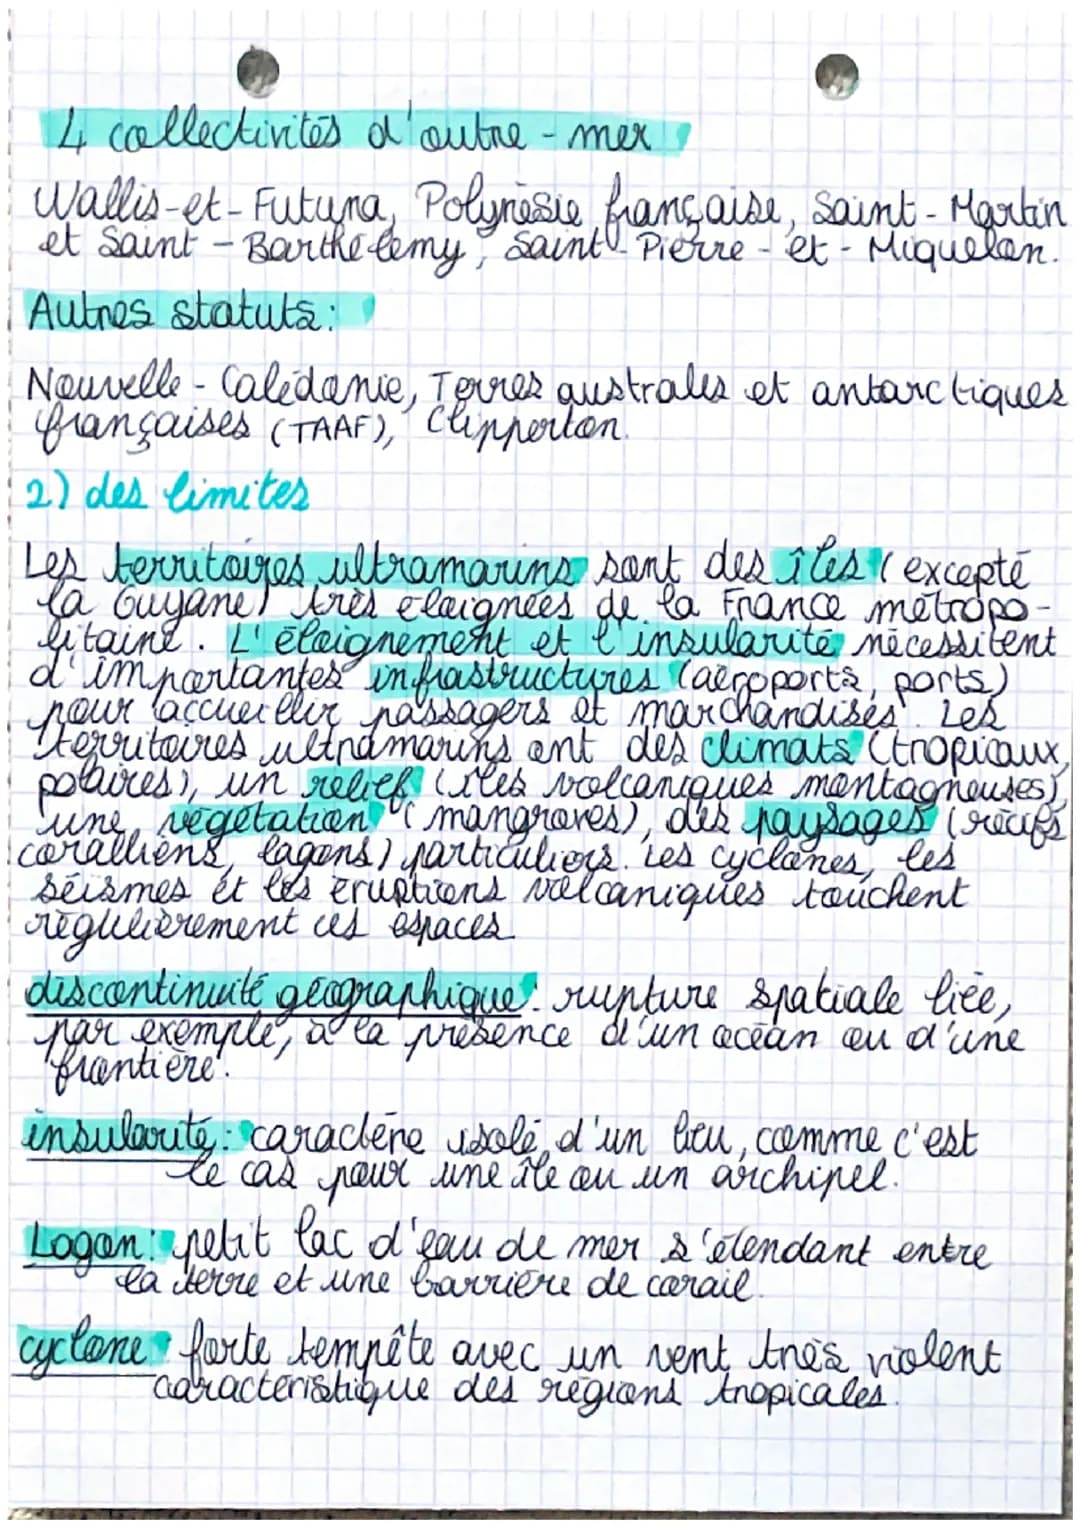 4 collectivités d'outre-mer
Wallis-et-Futuna, Polynésie française, Saint-Martin
et Saint-Barthélemy, Saint-Pierre-et-Miquelon.
Autres statuts:
Nouvelle-Calédonie, Terres australes et antarctiques
françaises (TAAF), Clipperton.
2) des limites
Les territoires ultramarins sont des îles (excepté
la Guyane) très éloignées de la France métropo-
litaine. L'éloignement et l'insularité nécessitent
d'importantes infrastructures (aéroports, ports)
pour accueillir passagers et marchandises. Les
territoires ultramarins ont des climats (tropicaux,
polaires), un relief (îles volcaniques montagneuses),
une végétation (mangroves), des paysages (récifs
coralliens, lagons) particuliers. Les cyclones, les
séismes et les éruptions volcaniques touchent
régulièrement ces espaces.
discontinuité géographique: rupture spatiale liée,
par exemple, à la présence d'un océan ou d'une
frontière.
insularité: caractère isolé d'un lieu, comme c'est
le cas pour une île ou un archipel.
Lagon: petit lac d'eau de mer s'étendant entre
la terre et une barrière de corail.
cyclone: forte tempête avec un vent très violent
caractéristique des régions tropicales.